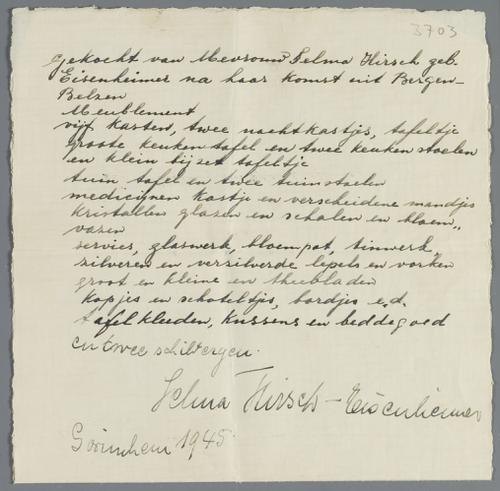 3703
Gekocht van Mevrouw Selma Hirsch geb.
Eisenheimer na haar komst uit Bergen-
Belzen
Meublement
vijf kasten, twee nachtkastjes, tafeltje
groote keuken tafel en twee keuken stoelen
en klein bij zet tafeltje
tuin tafel en twee tuinstoelen
medicijnen kastje en verscheidene mandjes
kristallen glazen en schalen en bloem„
vazen
servies, glaswerk, bloempot, tinwerk,
zilveren en verzilverde lepels en vorken
groot en kleine en theebladen
kopjes en schoteltjes, bordjes e.d.
tafelkleeden, kussens en beddegoed
en twee schilderyen.
Selma Hirsch - Eisenheimer
Gorinchem 1945.